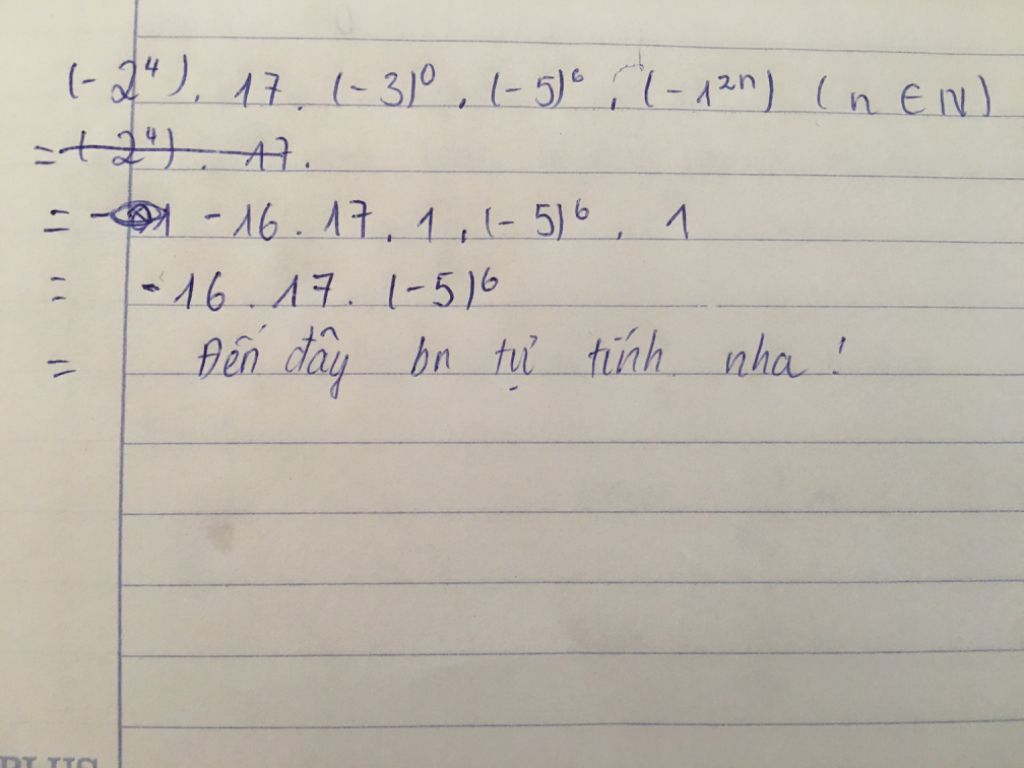 (-2⁴). 17. (-3)⁰. (-5)⁶. (-1²ⁿ) (n ∈ N)
= (-2⁴). 17.
= -1 -16. 17. 1. (-5)⁶. 1
= -16. 17. (-5)⁶
= Đến đây bn tự tính nha!
PLUS